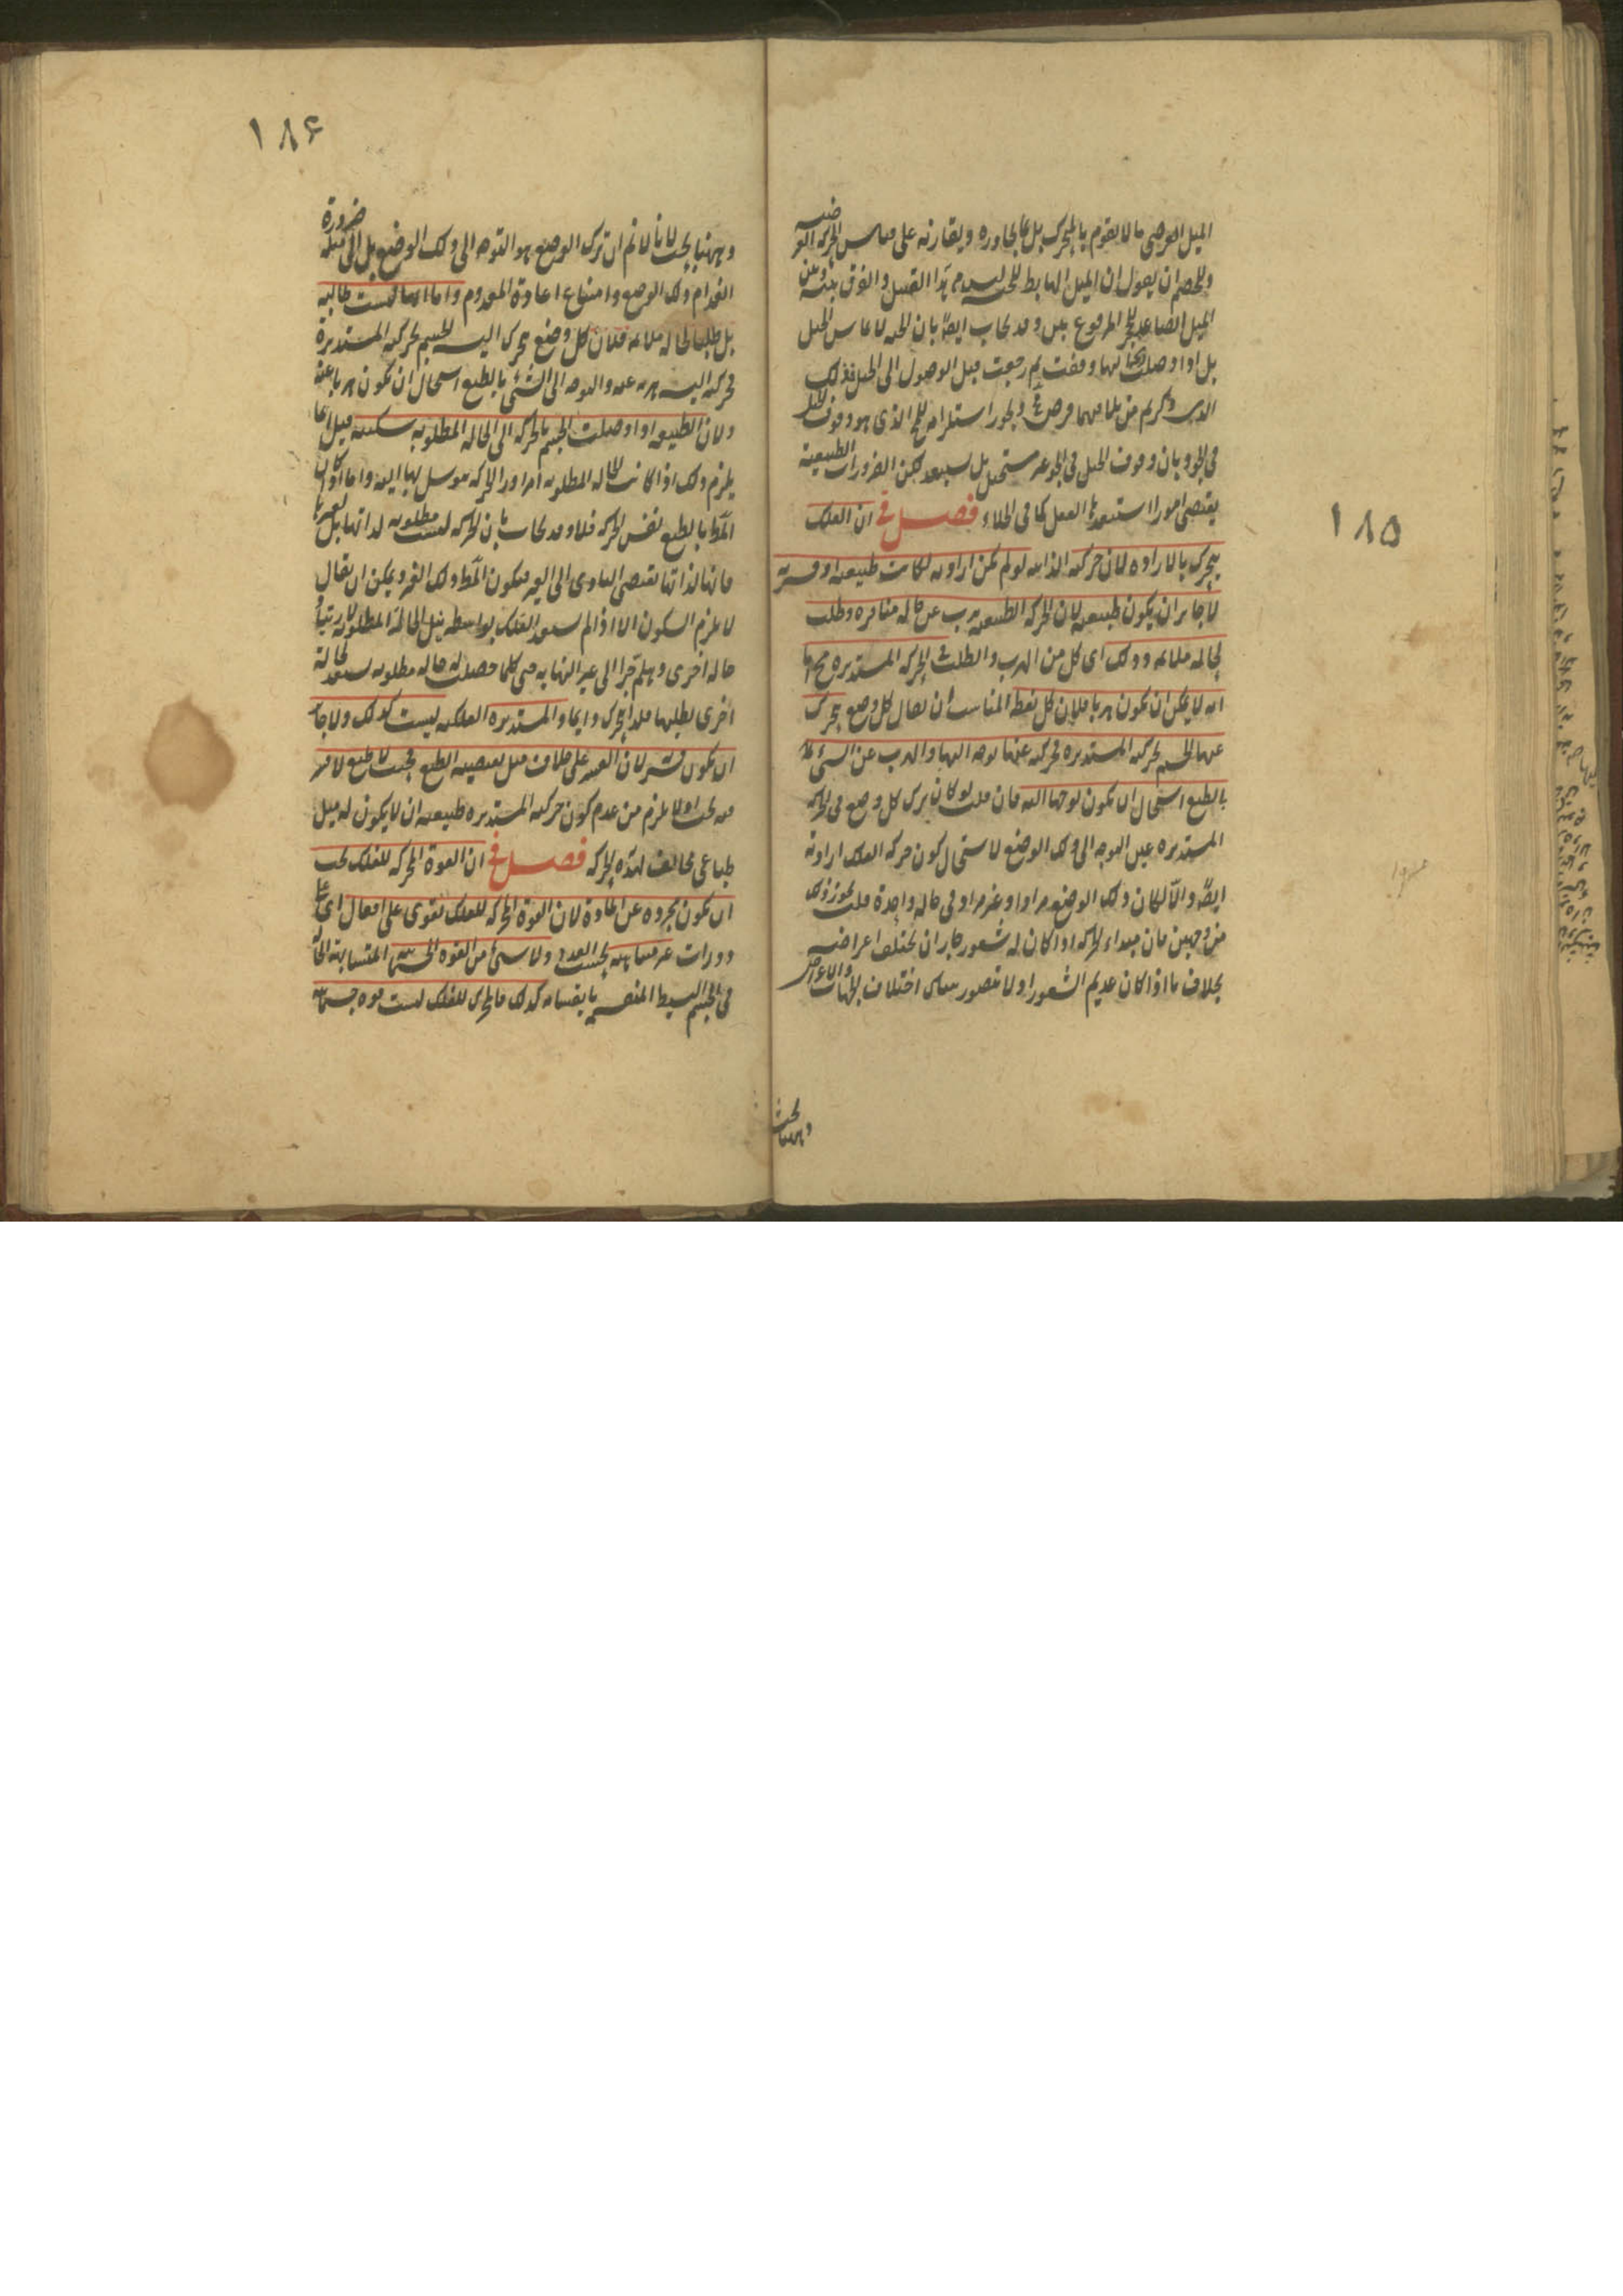 ١٨٥
الميل العرضى ما لا يقوم بالمتحرك بل بما يجاوره ويقارنه على قياس الحركة العرضيه
وللخصم ان يقول ان الميل الهابط للحبة ليس من هذا القبيل والفرق بينه وبين
الميل الصاعد للحجر المرفوع بين وقد يجاب ايضا بان الحبه لا تماس الجبل
بل اذا وصلت ريحه اليها وقفت ثم رجعت قبل الوصول الى الجبل فذلك
الذى ذكرتم من تلاقيهما فرض محال ويجوز استلزامه للمحال الذى هو وقوف الجبل
فى الجو وبان وقوف الجبل فى الجو غير مستحيل بل مستبعد لكن الضرورات الطبيعية
يقتضى امورا استبعدها العقل كما فى الخلاء فصل فى ان الفلك
يتحرك بالاراده لان حركته الذاتيه لو لم تكن اراديه لكانت طبيعيه او قسريه
لا جايز ان يكون طبيعيه لان الحركه الطبيعيه هرب عن حاله منافره وطلب
لحاله ملائمه وذلك اى كل من الهرب والطلب فى الحركه المستديره محال اما
انه لا يمكن ان تكون هربا فلان كل نقطة المناسب ان يقال كل وضع يتحرك
عنها الجسم بحركته المستديره فحركته عنها توجه اليها والهرب عن الشىء
بالطبع استحال ان يكون توجها اليه فان قلت لو كان ترك كل وضع فى الحركه
المستديره عين التوجه الى ذلك الوضع لاستحال كون حركه الفلك اراديه
ايضا والا لكان ذلك الوضع مرادا وغير مراد فى حاله واحدة قلت يجوز ذلك
من وجهين فان مبداء الحركه اذا كان له شعور جاز ان يختلف اغراضه
بخلاف ما اذا كان عديم الشعور اذ لا يتصور هناك اختلاف الجهات والاغراض
وههنا بحث
١٨۶
وههنا بحث لانا لا نم ان ترك الوضع هو التوجه الى ذلك الوضع بل الى مثله ضرورة
انعدام ذلك الوضع وامتناع اعادة المعدوم واما انها ليست طالبه
بل طلبا لحاله ملائمه فلان كل وضع يتحرك اليه الجسم بحركته المستديرة
فحركته اليه هربه عنه والتوجه الى الشئ بالطبع استحال ان تكون هربا عنه
ولان الطبيعه اذا اوصلت الجسم بالحركه الى الحاله المطلوبه سكنته قيل انما
يلزم ذلك اذا كانت الحاله المطلوبه امرا وراء الحركه يتوسل بها اليه واما اذا كان
المط بالطبع نفس الحركه فلا وقد يجاب بان الحركه ليست مطلوبه لذاتها بل لغيرها
فانها لذاتها تقتضى التادى الى الغير فيكون المط ذلك الغير ويمكن ان يقال
لا يلزم السكون الا اذا لم يستعد الفلك بواسطه نيل الحالة المطلوبه لارتياد
حاله اخرى وهلم جرا الى غير النهايه حتى كلما حصلت له حاله مطلوبه يستعد لحالة
اخرى يطلبها فلذا يتحرك دايما والمستديره الفلكيه ليست كذلك ولا جايز
ان تكون قسريه لان القسر على خلاف ميل يقتضيه الطبع فحيث لا طبع لا قسر
فيه بحث اذ لا يلزم من عدم كون حركته المستديره طبيعيه ان لا يكون له ميل
طباعى مخالف لهذه الحركه فصل فى ان القوة المحركه للفلك يجب
ان تكون مجرده عن المادة لان القوة المحركه للفلك تقوى على افعال اى على
دورات غير متناهيه بحسب العدد ولا شىء من القوه الجسمانيه المتشابهة الحاله
فى الجسم البسيط المنقسمه بانقسامه كذلك فالمحرك للفلك ليست قوه جسمانيه